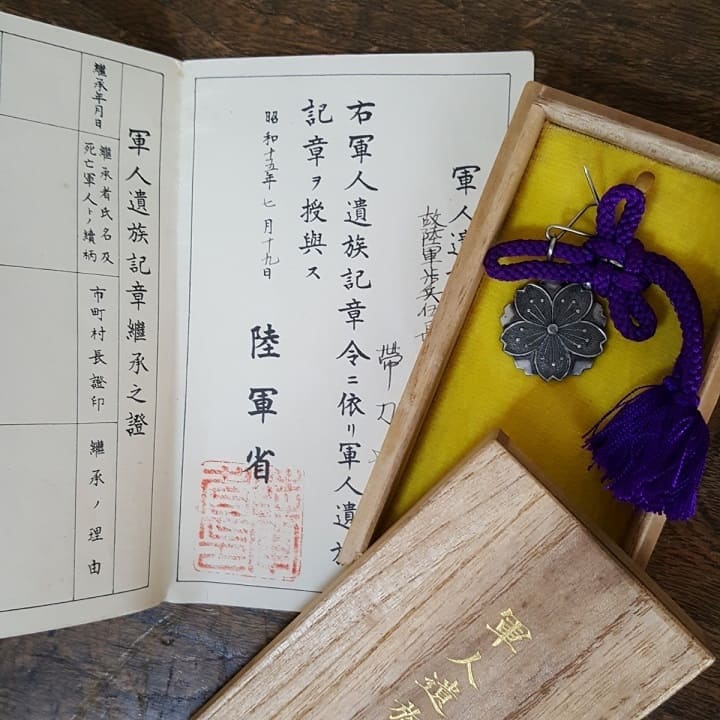 軍人遺
故陸軍歩兵伍長
帶刀
右軍人遺族記章令ニ依リ軍人遺族
記章ヲ授與ス
昭和十五年七月十九日
陸軍省
軍人遺族記章繼承之證
繼承年月日
繼承者氏名及
死亡軍人トノ續柄
市町村長證印
繼承ノ理由
軍人遺族